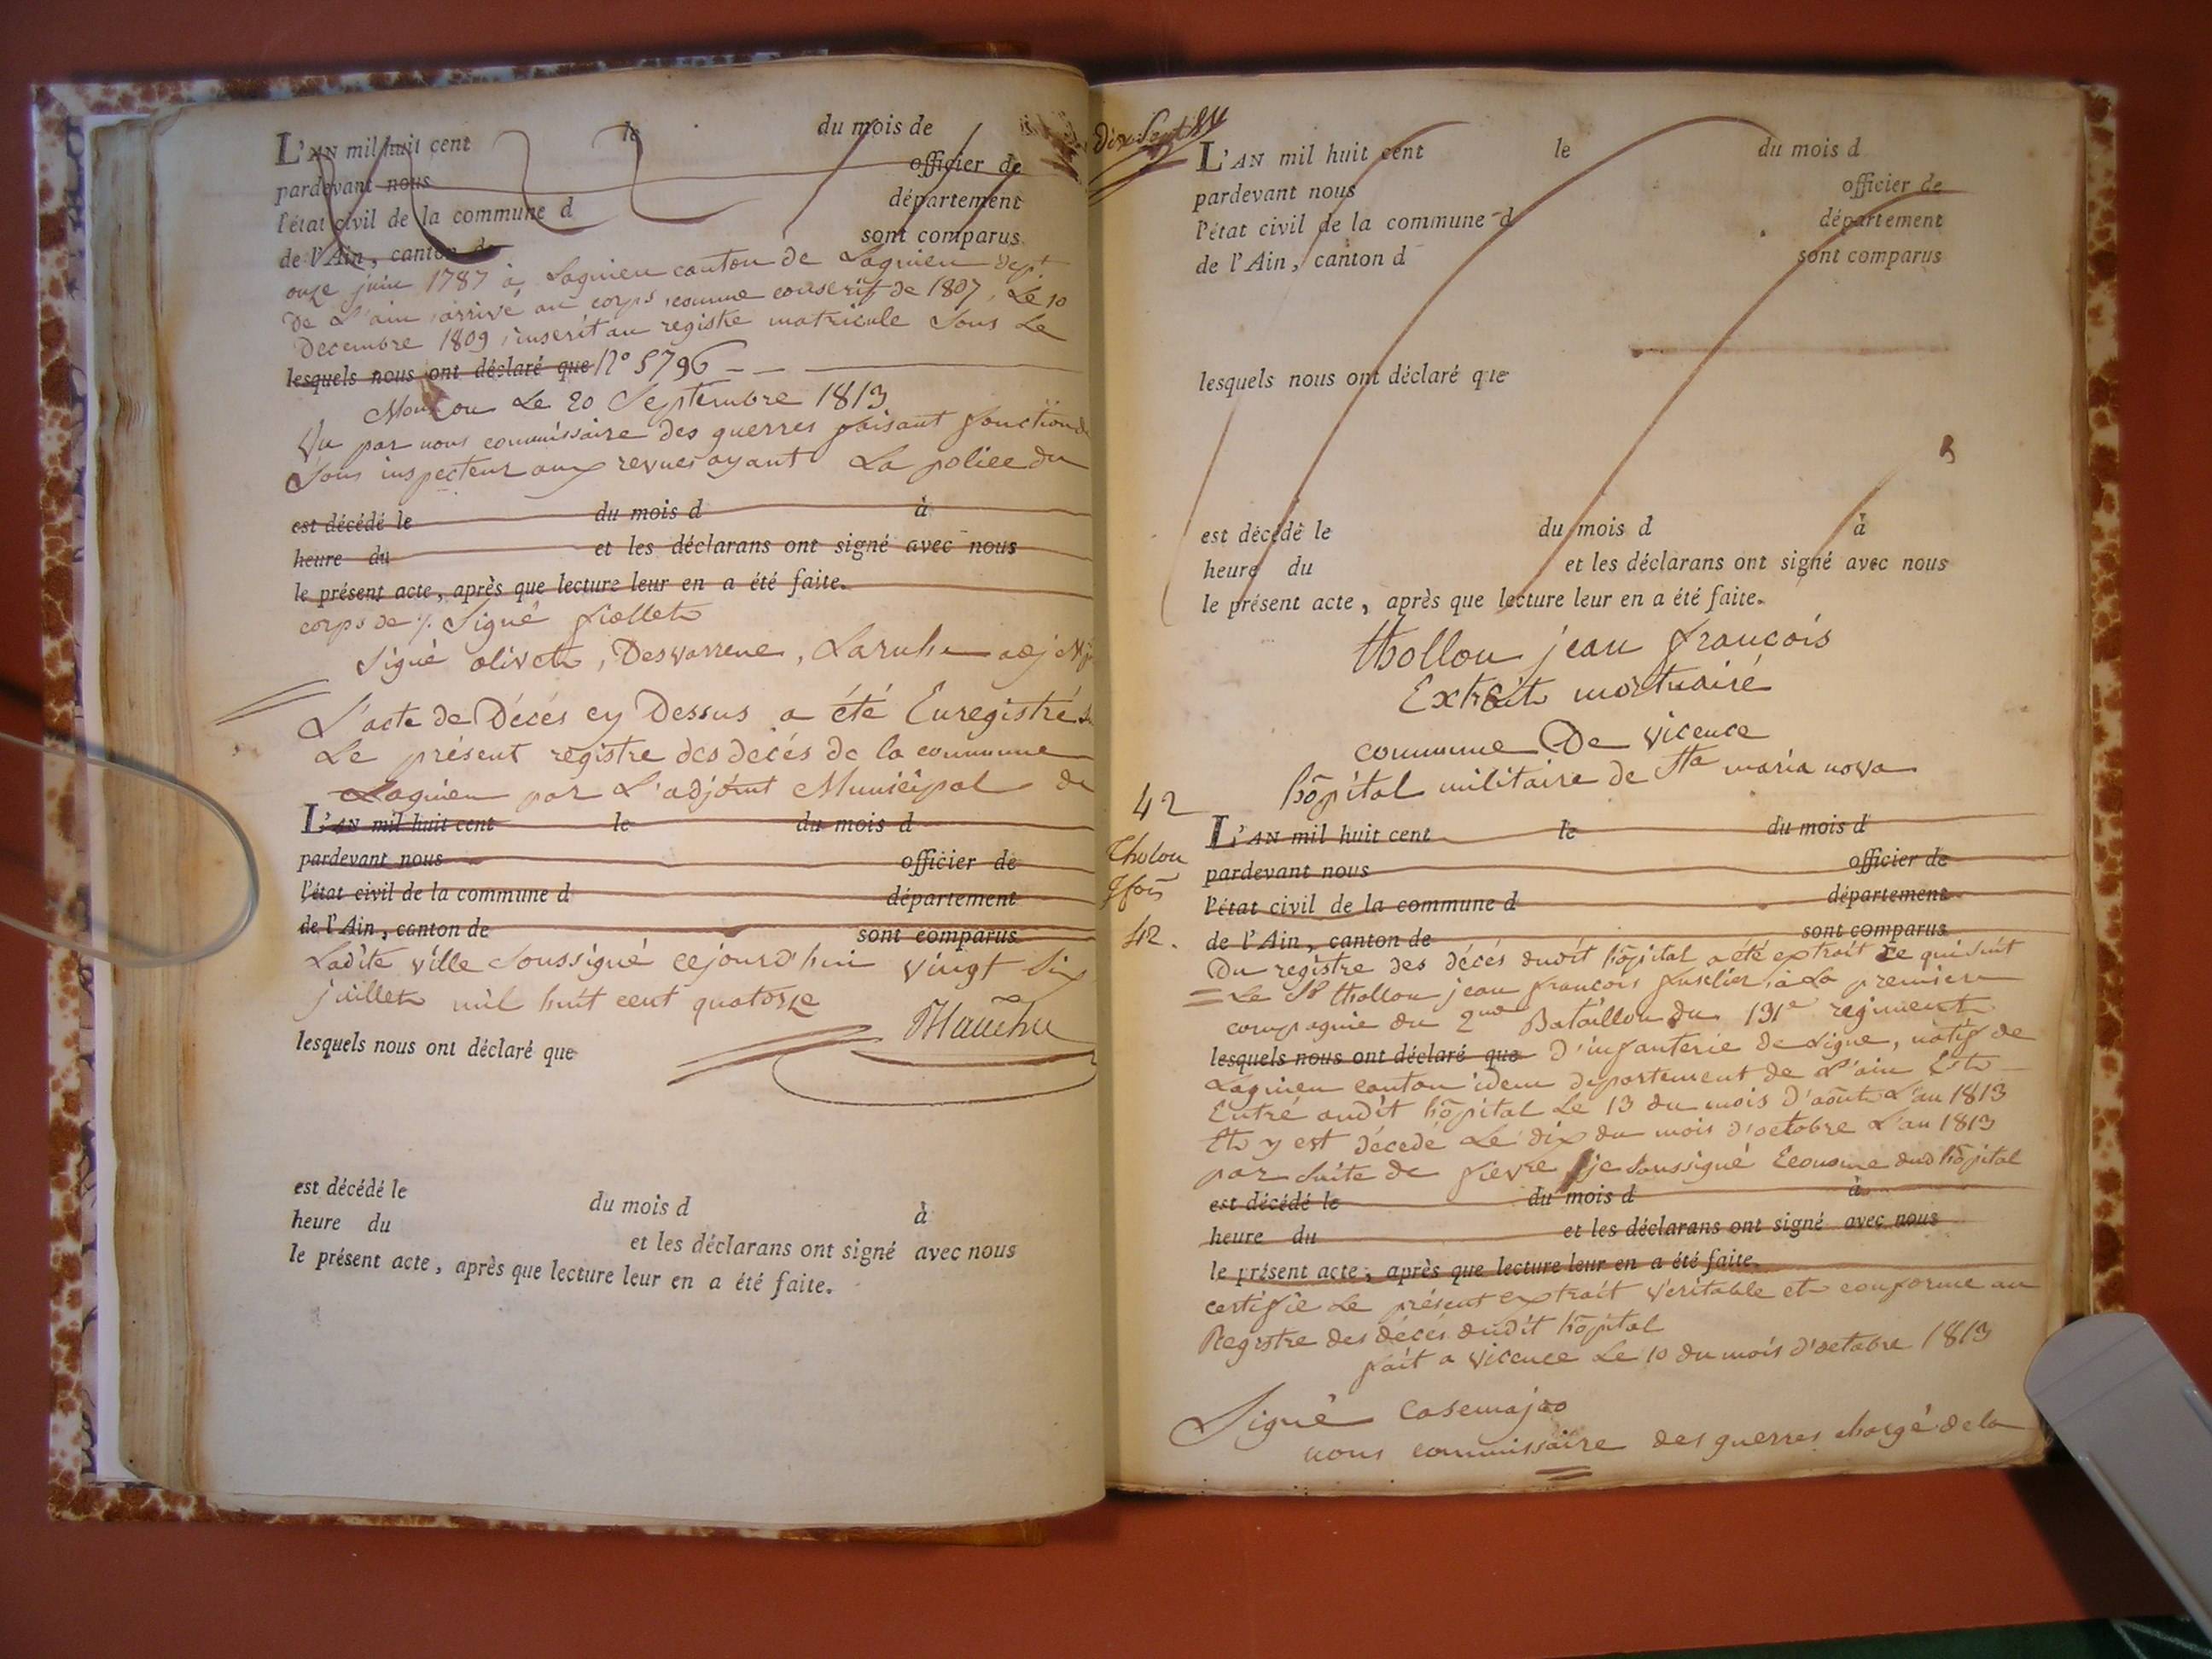 L'AN mil huit cent le du mois de
pardevant nous officier de
l'état civil de la commune d département
de l'Ain, canton de sont comparus
onze juin 1787 à Lagnieu canton de Lagnieu dept
De L'ain, arrivé au corps, comme conscrit de 1807, Le 10
Decembre 1809, inscrit au registre matricule Sous Le
lesquels nous ont déclaré que N° 5796
Le 20 Septembre 1813
Vu par nous commissaire des guerres faisant fonction de
Sous inspecteur aux revues ayant La police du
est décédé le du mois d à
heure du et les déclarans ont signé avec nous
le présent acte, après que lecture leur en a été faite.
corps de /. Signé
Signé olivet, Desvarrene, Laruhe adj
L'acte de Décés cy Dessus a été Enregistré
Le présent registre des décés de la commune
Lagnieu par L'adjoint Municipal de
L'AN mil huit cent le du mois d
pardevant nous officier de
l'état civil de la commune d département
de l'Ain, canton de sont comparus
Ladite ville Soussigné cejourd'hui vingt Six
juillet mil huit cent quatorze
lesquels nous ont déclaré que
est décédé le du mois d à
heure du et les déclarans ont signé avec nous
le présent acte, après que lecture leur en a été faite.
dix Sept
L'AN mil huit cent le du mois d
pardevant nous officier de
l'état civil de la commune d département
de l'Ain, canton d sont comparus
lesquels nous ont déclaré que
est décédé le du mois d à
heure du et les déclarans ont signé avec nous
le présent acte, après que lecture leur en a été faite.
thollon jean françois
Extrait mortuaire
commune De vicence
hôpital militaire de Sta maria nova
42
Tholon
jfois
42.
L'AN mil huit cent le du mois d
pardevant nous officier de
l'état civil de la commune d département
de l'Ain, canton de sont comparus
Du registre des décés dudit hôpital a été extrait ce qui suit
Le Sr thollon jean francois fusilier à La premiere
compagnie du 2nd Bataillon du 131e regiment
lesquels nous ont déclaré que D'infanterie de Ligne, natif de
Lagnieu canton idem departement de L'ain Est
Entré audit hôpital Le 13 du mois D'août L'an 1813
Et y est décedé Le dix du mois d'octobre L'an 1813
par Suite de fievre je Soussigné Econome dud hôpital
est décédé le du mois d à
heure du et les déclarans ont signé avec nous
le présent acte, après que lecture leur en a été faite.
certifie Le présent extrait veritable et conforme au
Registre des décés dudit hôpital
fait a vicence Le 10 du mois d'octobre 1813
Signé Casemajoo
nous commissaire des guerres chargé de la